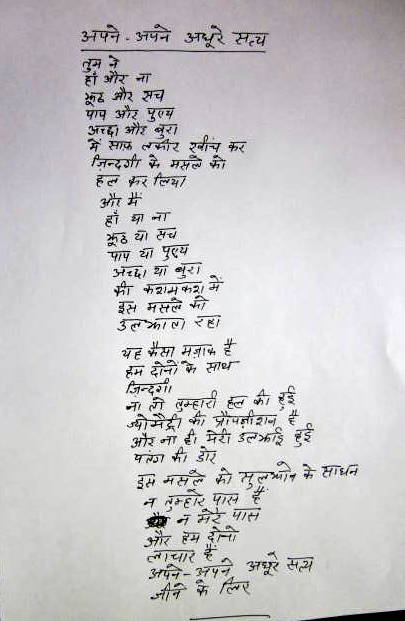 अपने - अपने अधूरे सत्य
तुम ने
हाँ और ना
झूठ और सच
पाप और पुण्य
अच्छा और बुरा
में साफ़ लकीर खींच कर
ज़िन्दगी के मसले को
हल कर लिया
और मैं
हाँ या ना
झूठ या सच
पाप या पुण्य
अच्छा या बुरा
की कशमकश में
इस मसले को
उलझाता रहा
यह कैसा मज़ाक है
हम दोनों के साथ
ज़िन्दगी
ना तो तुम्हारी हल की हुई
ज्योमैट्री की प्रौपोज़ीशन है
और ना ही मेरी उलझाई हुई
पतंग की डोर
इस मसले को सुलझाने के साधन
न तुम्हारे पास हैं
न मेरे पास
और हम दोनो
लाचार हैं
अपने - अपने अधूरे सत्य
जीने के लिए